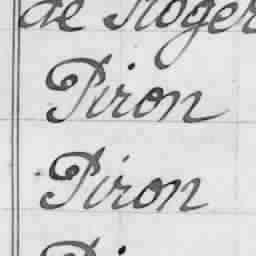 de Roger
Piron
Piron